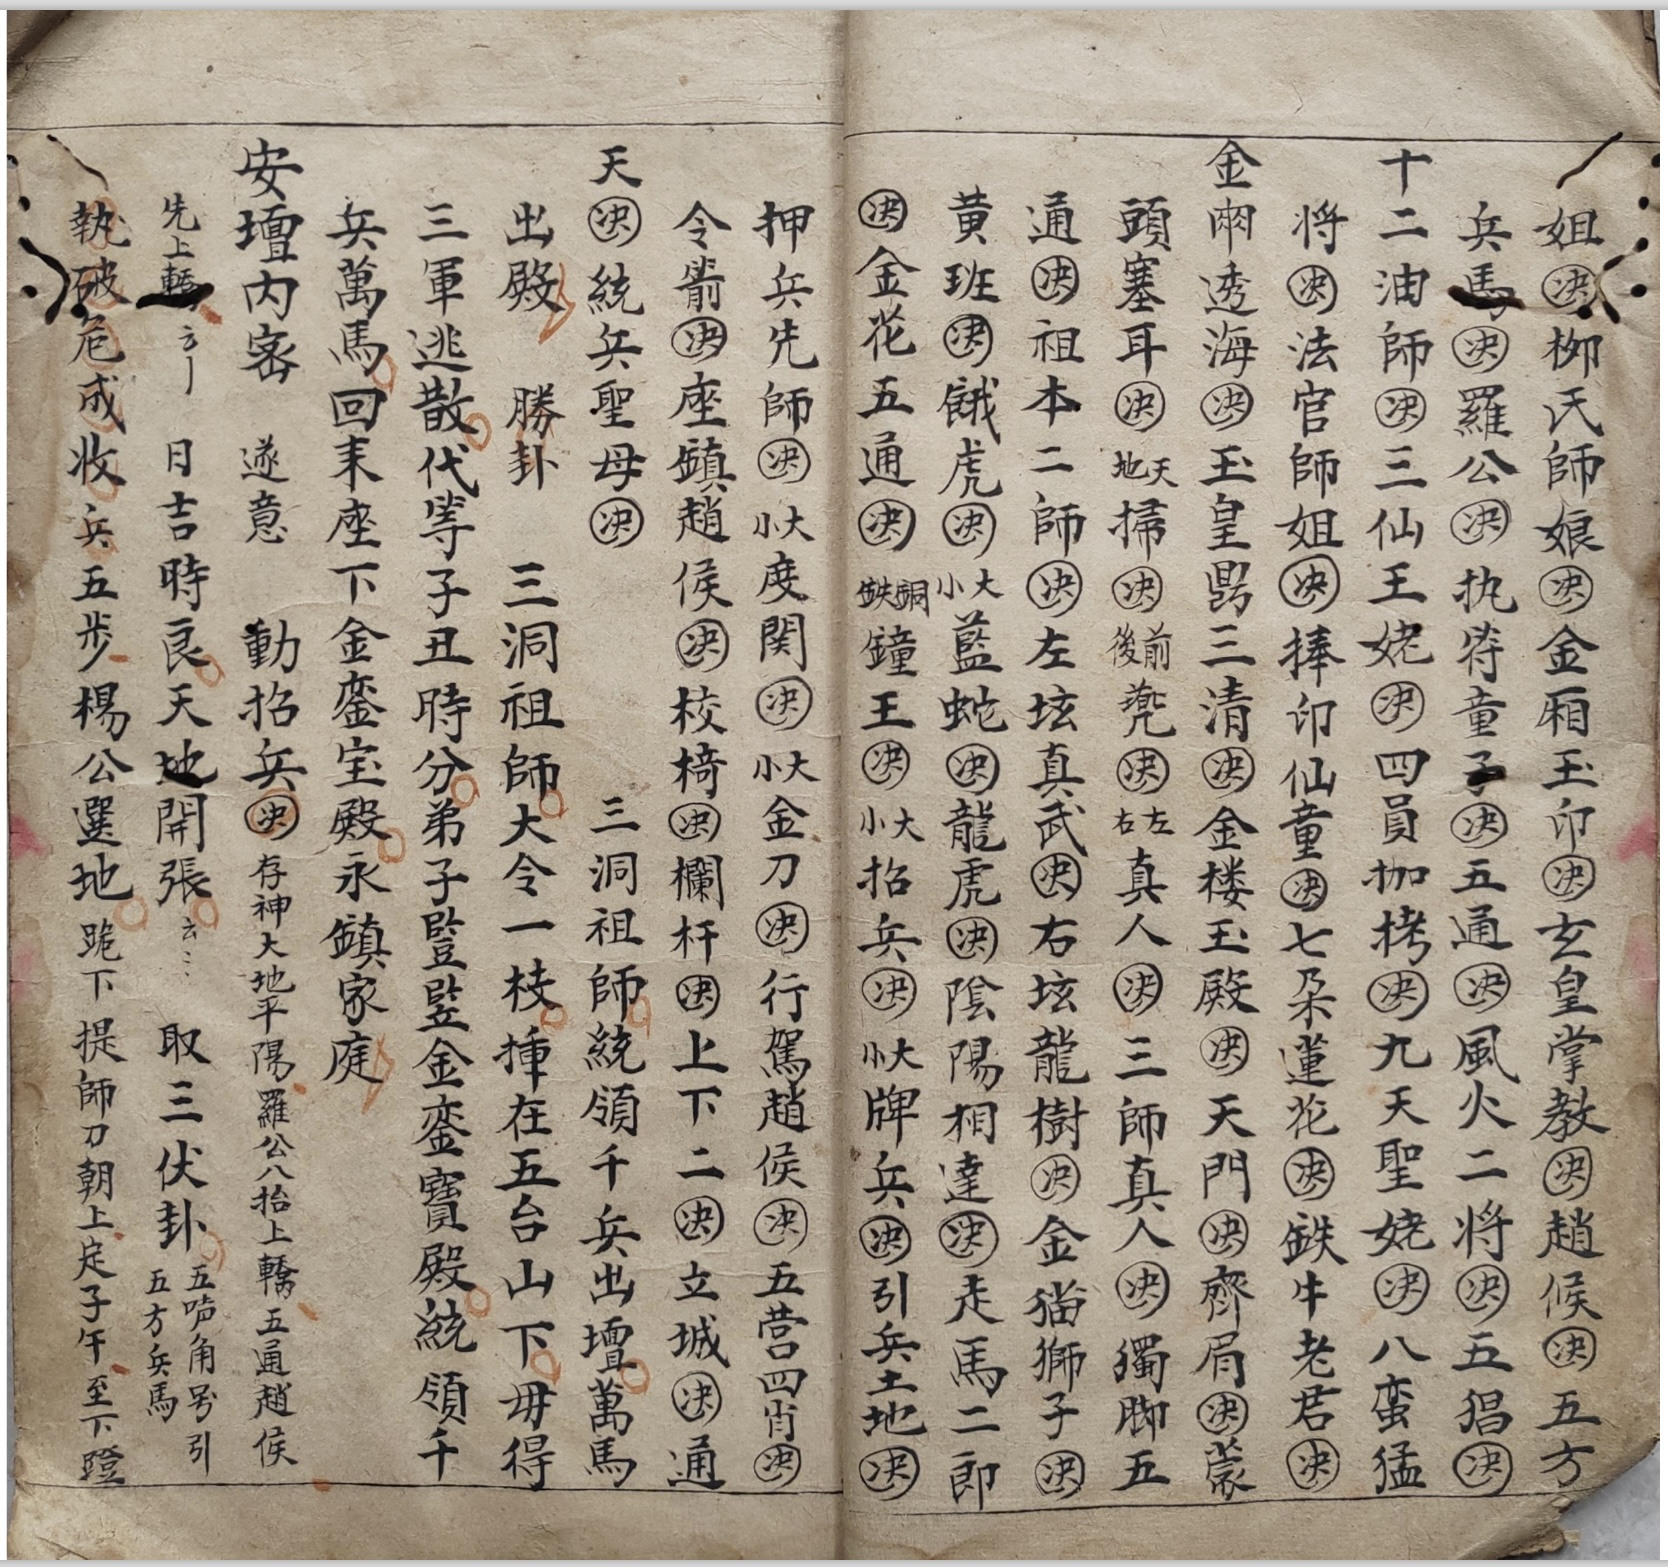 姐決柳氏師娘決金厢玉印決玄皇掌教決趙候決五方
兵馬決羅公決执符童子決五通決風火二将決五猖決
十二油師決三仙王姥決四員枷拷決九天聖姥決八蛮猛
将決法官師姐決捧印仙童決七朵蓮花決鉄牛老君決
金闹透海決玉皇昂三清決金楼玉殿決天門決齊肩決蒙
頭塞耳決天地掃決前後甕決左右真人決三師真人決獨脚五
通決祖本二師決左坛真武決右坛龍樹決金猫獅子決
黄班決餓虎決大小藍蛇決龍虎決陰陽相達決走馬二郎
決金花五通決銅鉄鐘王決大小招兵決大小牌兵決引兵土地決
押兵先師決大小度関決大小金刀決行駕趙侯決五营四肖決
令箭決座鎮趙侯決校椅決欄杆決上下二決立城決通
天決統兵聖母決 三洞祖師統領千兵出壇萬馬
出殿 勝卦 三洞祖師大令一枝揷在五台山下毋得
三軍逃散代等子丑時分弟子豎豎金銮寶殿統領千
兵萬馬回耒座下金銮宝殿永鎮家庭
安壇内宻 遂意 動招兵決存神大地平陽羅公八抬上轎五通趙侯
先上轎云 日吉時良天地開張云 取三伏卦五吹角号引五方兵馬
執破危成收兵五步楊公選地跪下提師刀朝上定子午至下